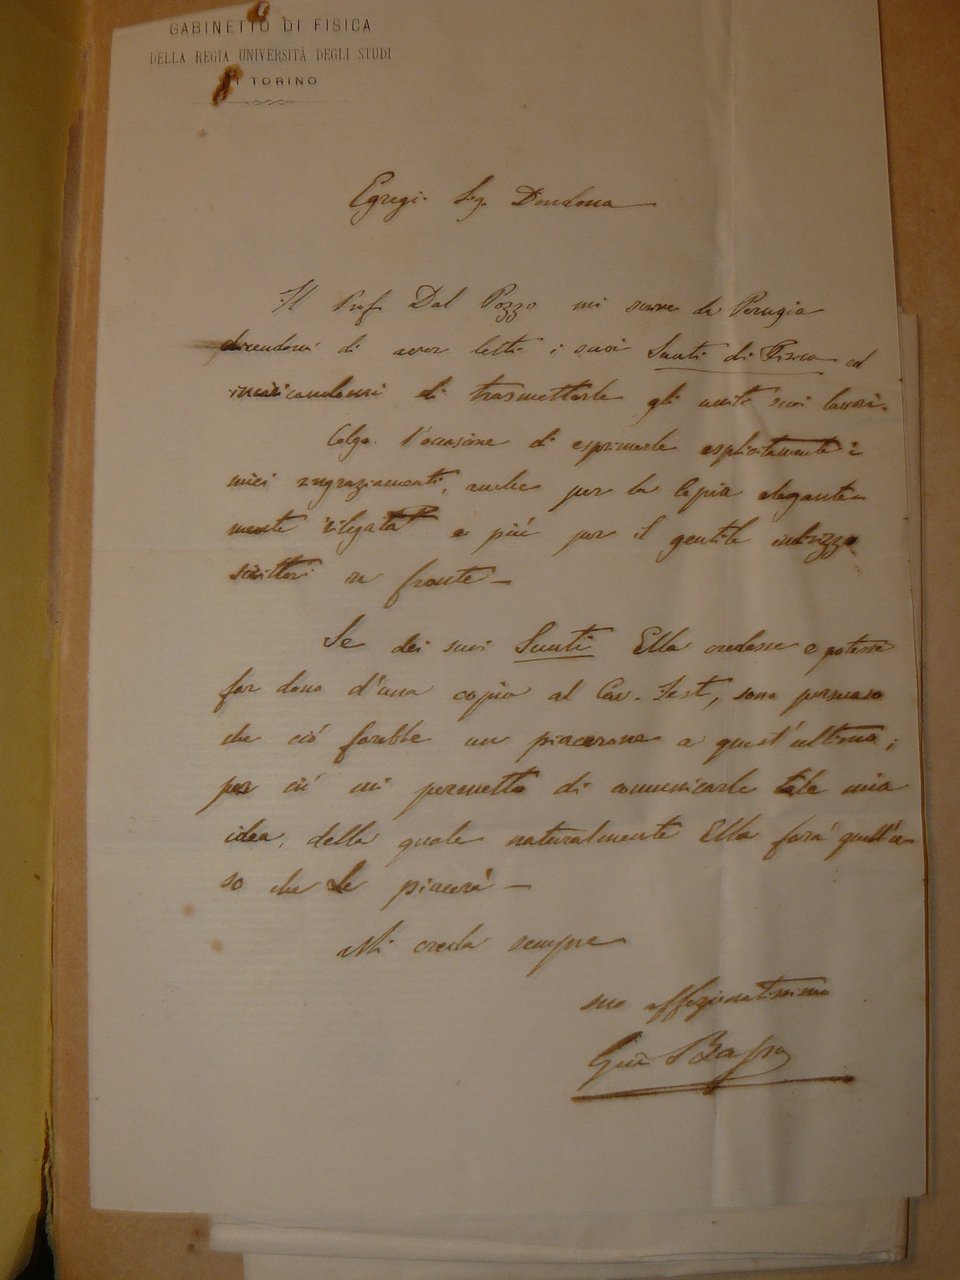 GABINETTO DI FISICA
DELLA REGIA UNIVERSITÀ DEGLI STUDI
DI TORINO
Egregio Sig. Dondona
Il Prof. Dal Pozzo mi scrive da Perugia
dicendomi di aver letti i suoi Sunti di Fisica ed
incaricandomi di trasmetterle gli uniti suoi lavori.
Colgo l'occasione di esprimerle esplicitamente i
miei ringraziamenti, anche per la copia elegante-
mente rilegata e più per il gentile indirizzo
scrittovi in fronte —
Se dei suoi Sunti Ella credesse e potesse
far dono d'una copia al Cav. , sono persuaso
che ciò farebbe un piacerone a quest'ultimo;
per ciò mi permetto di comunicarle tale mia
idea, della quale naturalmente Ella farà quell'u-
so che le piacerà —
Mi creda sempre
suo affezionatissimo
Gius Basso